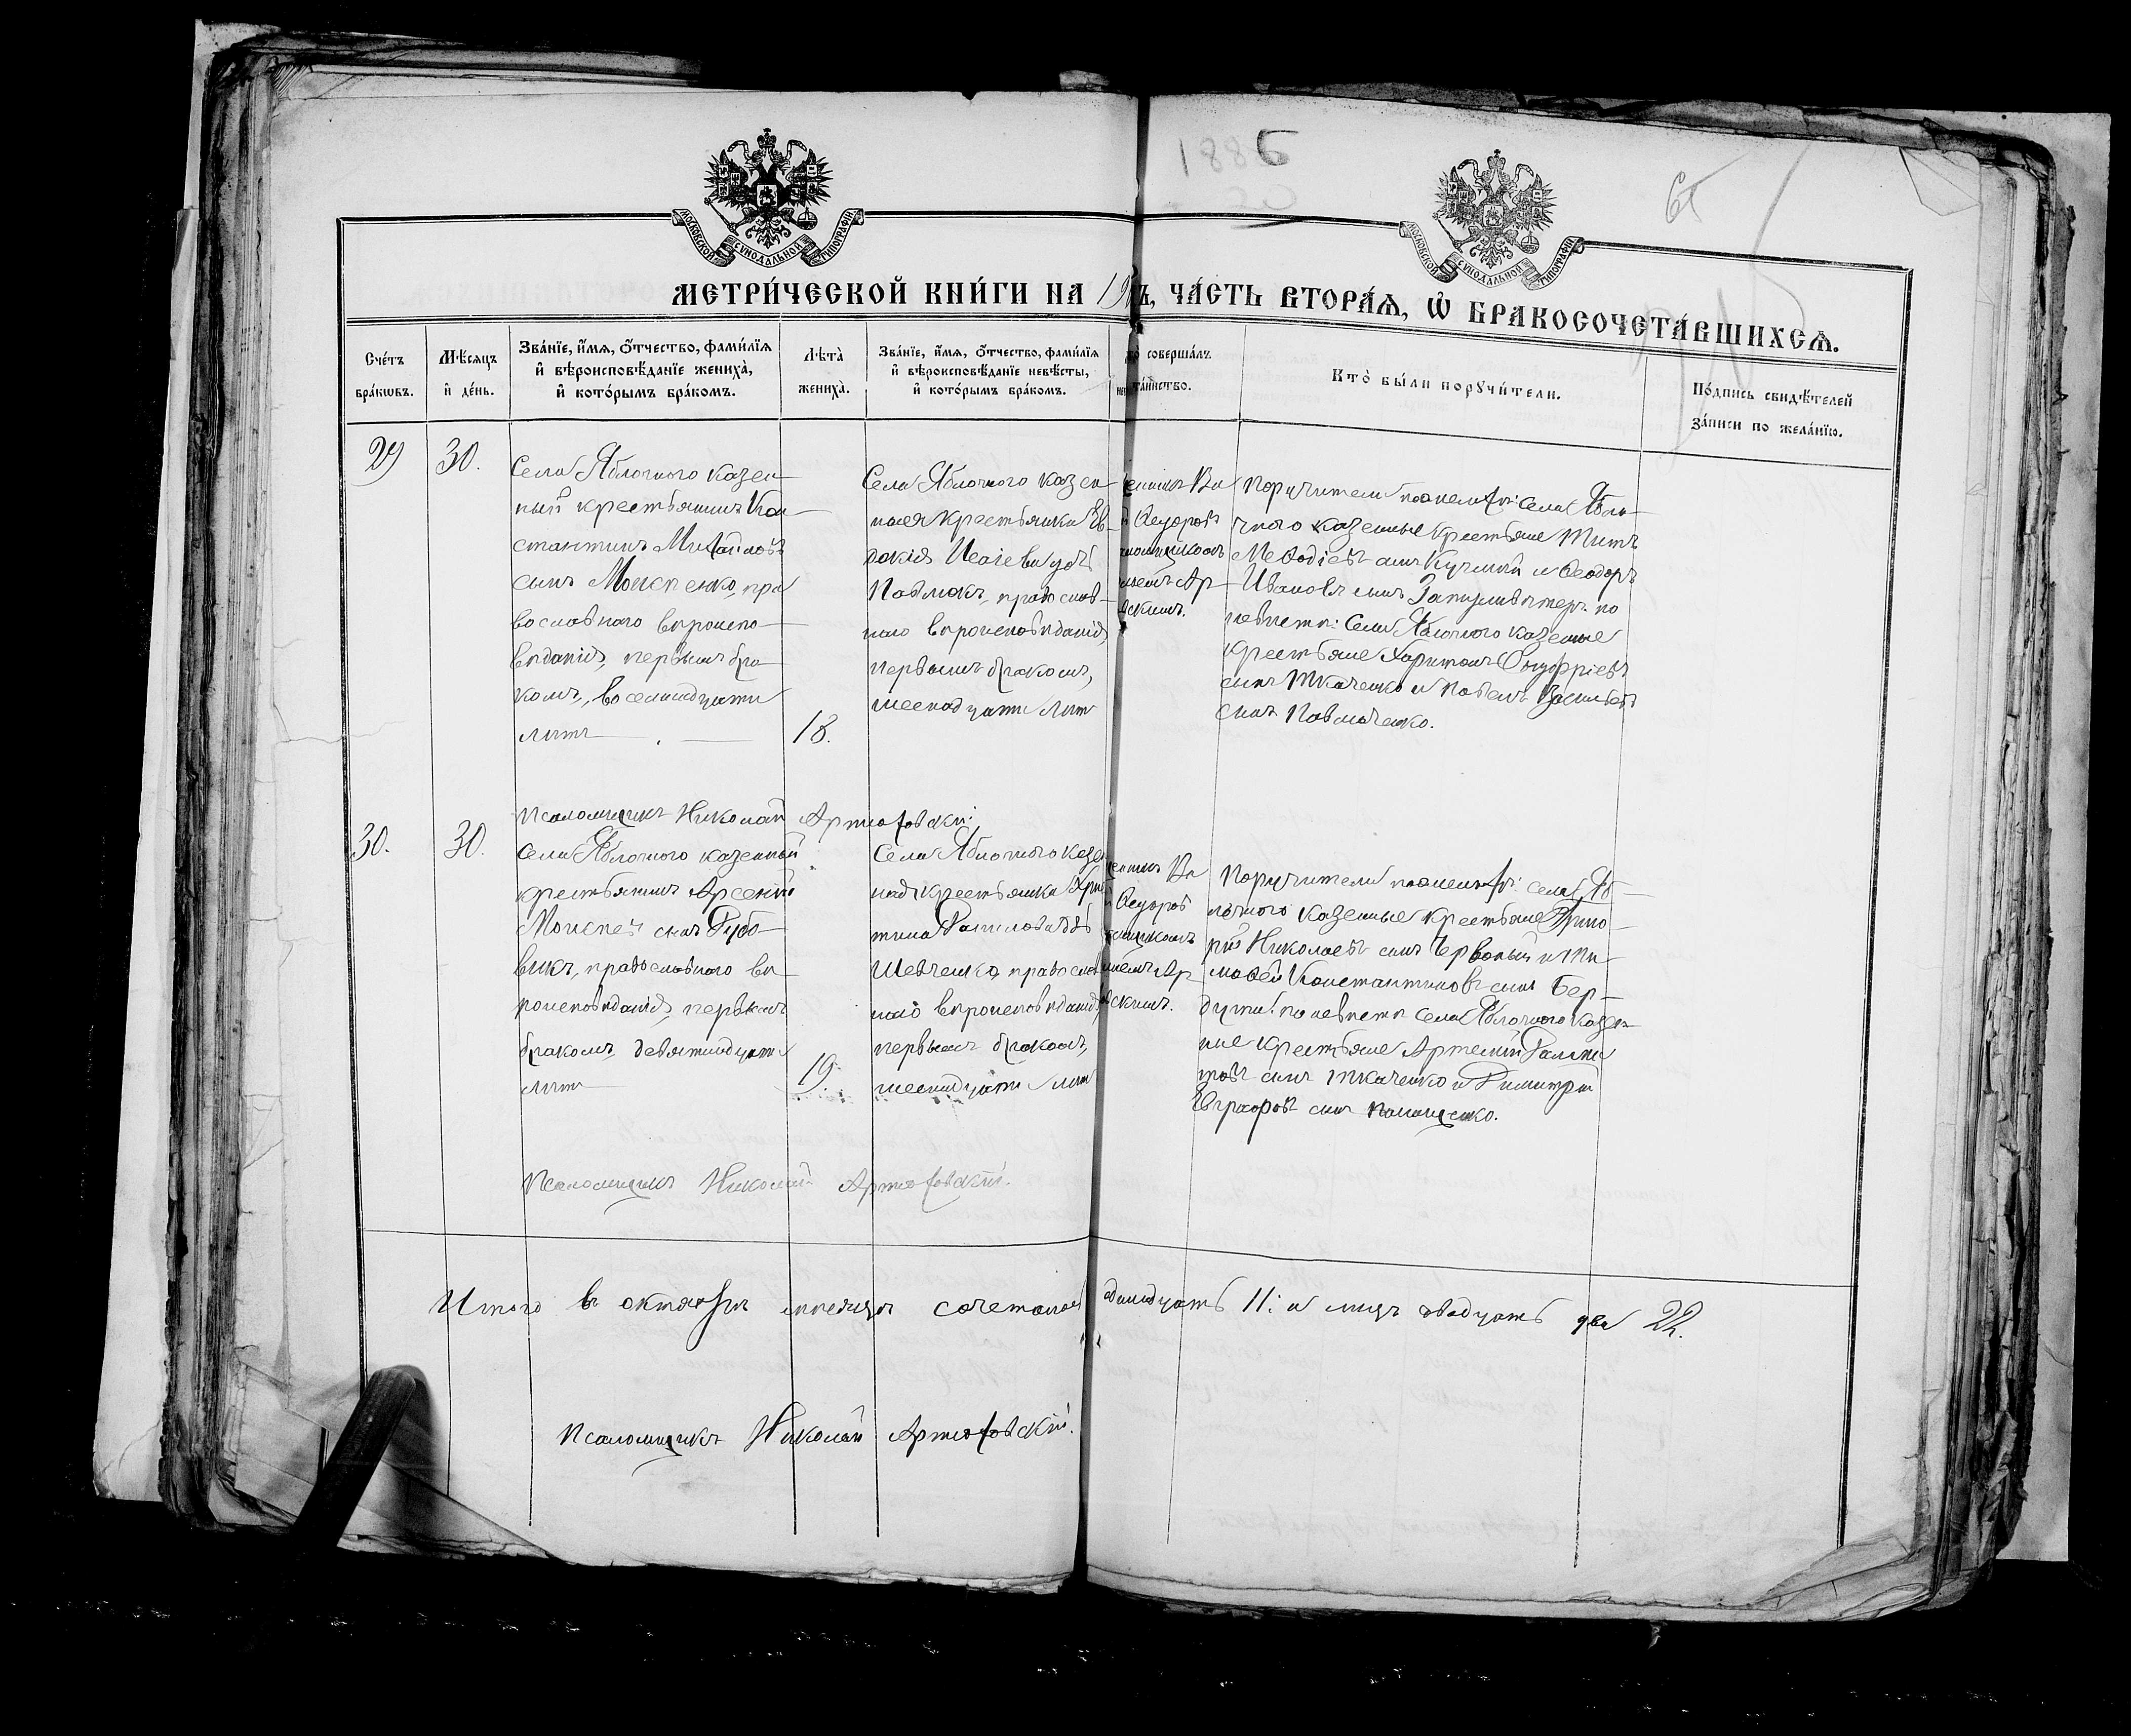 1886
МОСКОВСКОЙ СѴНОДАЛЬНОЙ ТИПОГРАФІИ
МОСКОВСКОЙ СѴНОДАЛЬНОЙ ТИПОГРАФІИ
МЕТРИ́ЧЕСКОЙ КНИ́ГИ НА 19 Ъ, ЧА́СТЬ ВТОРА́Ѧ, Ѡ҆ БРАКОСОЧЕТА́ВШИХСѦ.
Сче́тъ
бра́кѡвъ.
Мѣ́сѧцъ
и҆ де́нь.
Зва́нїе, и҆́мѧ, ѻ҆́тчество, фами́лїѧ
и҆ вѣроисповѣ́данїе жениха̀,
и҆ кото́рымъ бра́комъ.
Лѣта̀
жениха̀.
Зва́нїе, и҆́мѧ, ѻ҆́тчество, фами́лїѧ
и҆ вѣроисповѣ́данїе невѣ́сты,
и҆ кото́рымъ бра́комъ.
то̀ соверша́лъ
та́инство.
Кто̀ бы́ли порꙋчи́тели.
По́дпись свидѣ́телей
за́писи по жела́нїю.
29
30.
Села Яблочного казен-
ный крестьянинъ Кон-
стантинъ Михайловъ
сынъ Моисѣенко, пра
вославнаго вѣроиспо-
вѣданія, первымъ бра-
комъ, восемнадцати
лѣтъ
18.
Села Яблочного казен-
ная крестьянка Ев-
докія Исаіева дочь
православ-
наго вѣроисповѣданія,
первымъ бракомъ,
шеснадцати лѣтъ
Ѳедоровъ
Ар-
Поручители по женихѣ: села Ябло-
чного казенные крестьяне Титъ
Меѳодіевъ сынъ и Ѳеодоръ
Ивановъ сынъ по
невѣстѣ: Села Яблочного казенные
крестьяне Харитонъ Онуфріевъ
сынъ Ткаченко и Павелъ Васильевъ
сынъ Павличенко.
Псаломщикъ Николай Артюховскій
30.
30.
Села Яблочного казенный
крестьянинъ Арсеній
Моисѣевъ сынъ
православнаго вѣ-
роисповѣданія, первымъ
бракомъ, девятнадцати
лѣтъ
19.
Села Яблочного казен
ная крестьянка Хри
стина Данилова дочь
Шевченко, православ
наго вѣроисповѣданія,
первымъ бракомъ,
шеснадцати лѣтъ
Ѳедоровъ
Поручители по женихѣ: села Яб-
лочного казенные крестьяне
Николаевъ сынъ Червоный и Ти-
моѳей Константиновъ сынъ Бер-
по невѣстѣ Села Яблочного казен
ные крестьяне Артемій
сынъ Ткаченко и Димитрій
Евграфовъ сынъ
Псаломщикъ Николай Артюховскій.
Итого въ октябрѣ мѣсяцѣ сочетаній одинадцать 11: а лицъ двадцать два 22.
Псаломщикъ Николай Артюховскій.